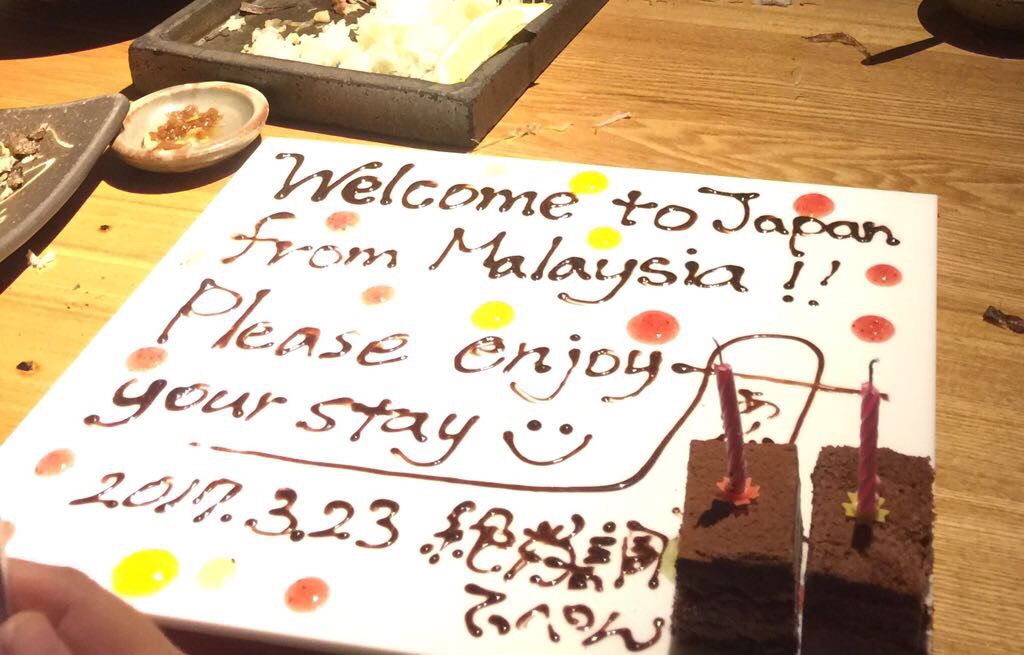 Welcome to Japan
from Malaysia !!
Please enjoy
your stay
2017.3.23